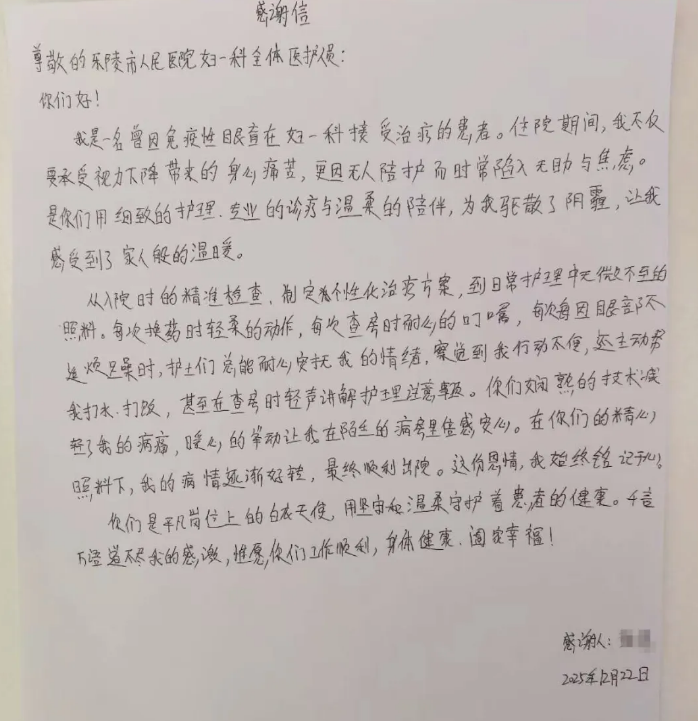 感谢信
尊敬的乐陵市人民医院妇一科全体医护人员：
你们好！
我是一名曾因免疫性眼盲在妇一科接受治疗的患者。住院期间，我不仅
要承受视力下降带来的身心痛苦，更因无人陪护而时常陷入无助与焦虑。
是你们用细致的护理、专业的诊疗与温柔的陪伴，为我驱散了阴霾，让我
感受到了家人般的温暖。
从入院时的精准检查、制定个性化治疗方案，到日常护理中无微不至的
照料。每次换药时轻柔的动作，每次查房时耐心的叮嘱，每次每因眼部不
适烦躁时，护士们总能耐心安抚我的情绪，察觉到我行动不便，还主动帮
我打水、打饭，甚至在查房时轻声讲解护理注意事项。你们娴熟的技术减
轻了我的病痛，暖心的举动让我在陌生的病房里倍感安心。在你们的精心
照料下，我的病情逐渐好转，最终顺利出院。这份恩情，我始终铭记于心。
你们是平凡岗位上的白衣天使，用坚守和温柔守护着患者的健康。千言
万语道不尽我的感激，惟愿你们工作顺利，身体健康、阖家幸福！
感谢人：
2025年12月22日